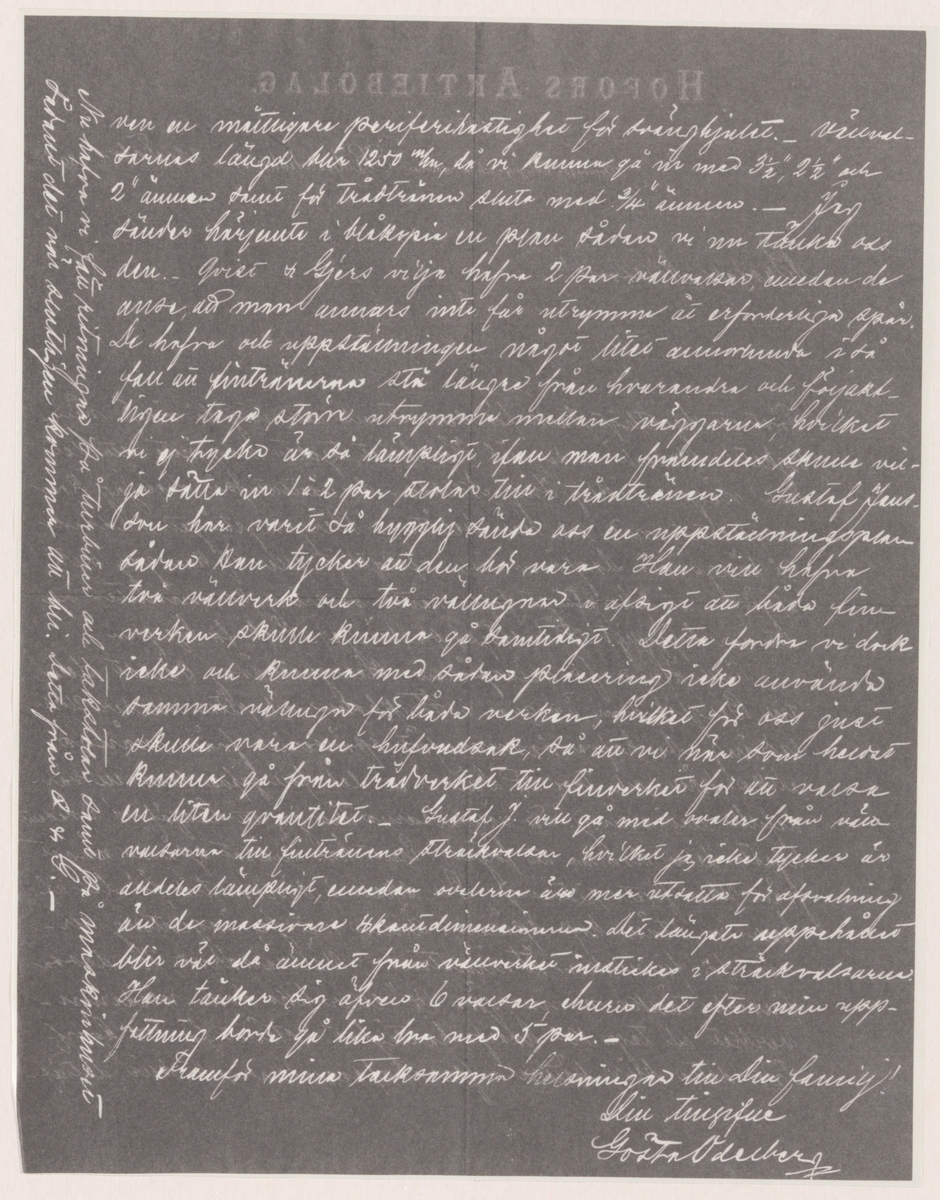 HOFORS AKTIEBOLAG.
ven en måttligare periferihastighet för svänghjulet. – Vällval-
sarnas längd blir 1250 m/m, då vi kunna gå in med 3½", 2½" och
2" ämnen samt för trådtrånen sluta med ¾" ämnen. – Jag
sänder härjemte i blåkopia en plan sådan vi nu tänka oss
den. – Qvist & Gjers vilja hafva 2 par vällvalsar, emedan de
anse att man annars inte får utrymme åt erforderliga spår.
De hafva och uppställningen något litet annorlunda i så
fall att fintrånerna stå längre från hvarandra och följakt-
ligen taga större utrymme mellan väggarne, hvilket
vi ej tycka är så lämpligt, ifall man framdeles skulle vil-
ja sätta in 1 à 2 par stolar till i trådtrånen. Gustaf Jans-
son har varit så hygglig sända oss en uppställningsplan
sådan han tycker att den bör vara. Han vill hafva
två vällverk och två vällugnar i afsigt att båda fin-
verken skulle kunna gå samtidigt. Detta fordra vi dock
icke och kunna med sådan placering icke använda
samma vällugn för båda verken, hvilket för oss just
skulle vara en hufvudsak, så att vi när som helst
kunna gå från trådverket till finverket för att valsa
en liten qvantitet. – Gustaf J. vill gå med ovaler från väll-
valsarna till fintrånens sträckvalsar, hvilket jag icke tycker är
alldeles lämpligt, emedan ovalerna äro mer utsatta för afsvalning
än de massivare 4kantdimensionerna. Det längsta uppehållet
blir väl då ämnet från vällverket instickes i sträckvalsarna.
Han tänker sig äfven 6 valsar, ehuru det efter min upp-
fattning borde gå lika bra med 5 par. –
Framför mina tacksamma helsningar till Din familj!
Din tillgifne
Gösta Odelberg
Nu hafva vi fått ritningar på turbiner och takstolar samt på maskinhuset
Sedan det var skrifvet kommer att bli. detta från Q & G. –